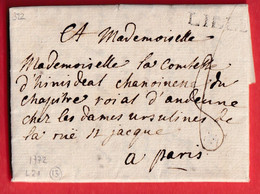 322
LILLE
A Mademoiselle
Mademoiselle la Comtesse
d'hinisdeal chanoinesse du
chapitre roial d'andenne
chez les dames ursulines de
la ruë st jacque
a paris
1772
L21 (15)